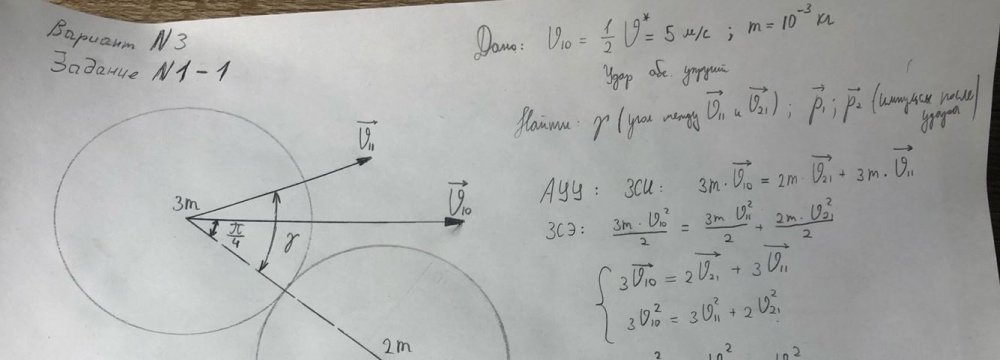 Вариант N3
Задание N1-1
Дано: V₁₀ = 1/2 V* = 5 м/с ; m = 10⁻³ кг
Удар абс. упругий
Найти: γ (угол между V⃗₁₁ и V⃗₂₁) ; p⃗₁ ; p⃗₂ (импульсы после удара)
V⃗₁₁
3m
V⃗₁₀
π/4
γ
2m
АУУ: ЗСИ: 3m · V⃗₁₀ = 2m · V⃗₂₁ + 3m · V⃗₁₁
ЗСЭ: 3m · V₁₀²/2 = 3m V₁₁²/2 + 2m · V₂₁²/2
{ 3V⃗₁₀ = 2V⃗₂₁ + 3V⃗₁₁
3V₁₀² = 3V₁₁² + 2V₂₁²